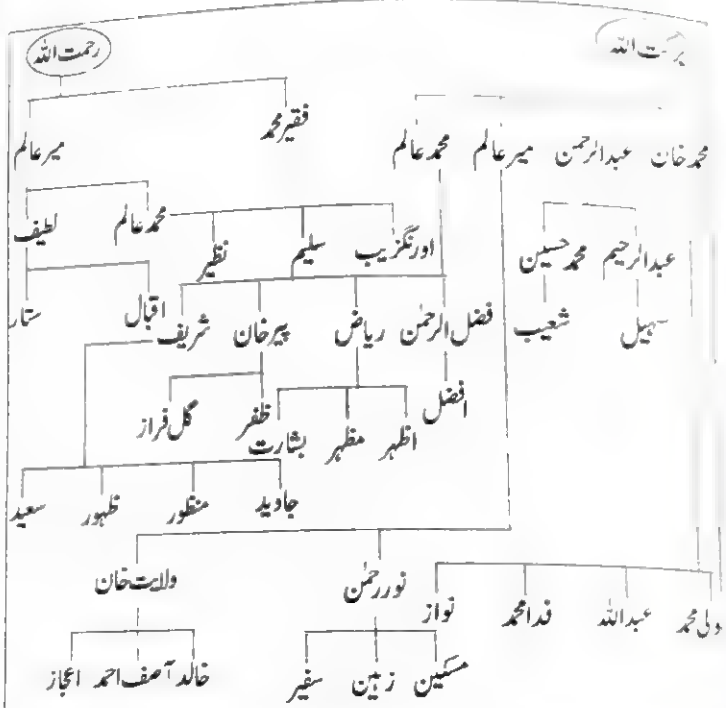 برکت اللہ رحمت اللہ
محمد خان عبدالرحمن میر عالم محمد عالم فقیر محمد میر عالم
عبدالرحیم محمد حسین اورنگزیب سلیم نظیر محمد عالم لطیف
سہیل شعیب فضل الرحمٰن ریاض پیر خان شریف اقبال ستار
افضل اظہر مظہر بشارت ظفر گل فراز
جاوید منظور ظہور سعید
ولی محمد عبداللہ فدا محمد نواز نور رحمٰن ولایت خان
مسکین زبین سفیر خالد آصف احمد اعجاز